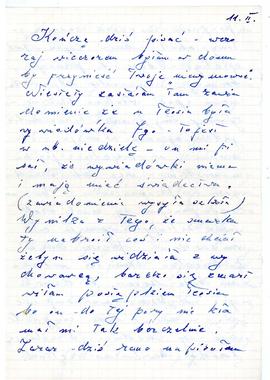 11.II.
Kończę dziś pisać – wczo
raj wieczorem byłam w domu
by przynieść Twoje
Niestety zastałam tam zawia
domienie że u Tosia była
wywiadówka 7go. – Tośeś
w ub. niedzielę – on mi pi
sał, że wywiadówki niema
i mają mieć świadectwa.
(zawiadomienie wysyła szkoła)
Wynika z Tego, że smarka
ty nabroił coś i nie chciał
żebym się widziała z wy
chowawcą, bardzo się zmart
wiłam postępkiem Tosia
bo on do tej pory nie kła
mał mi tak bezczelnie.
Zaraz dziś rano napisałam